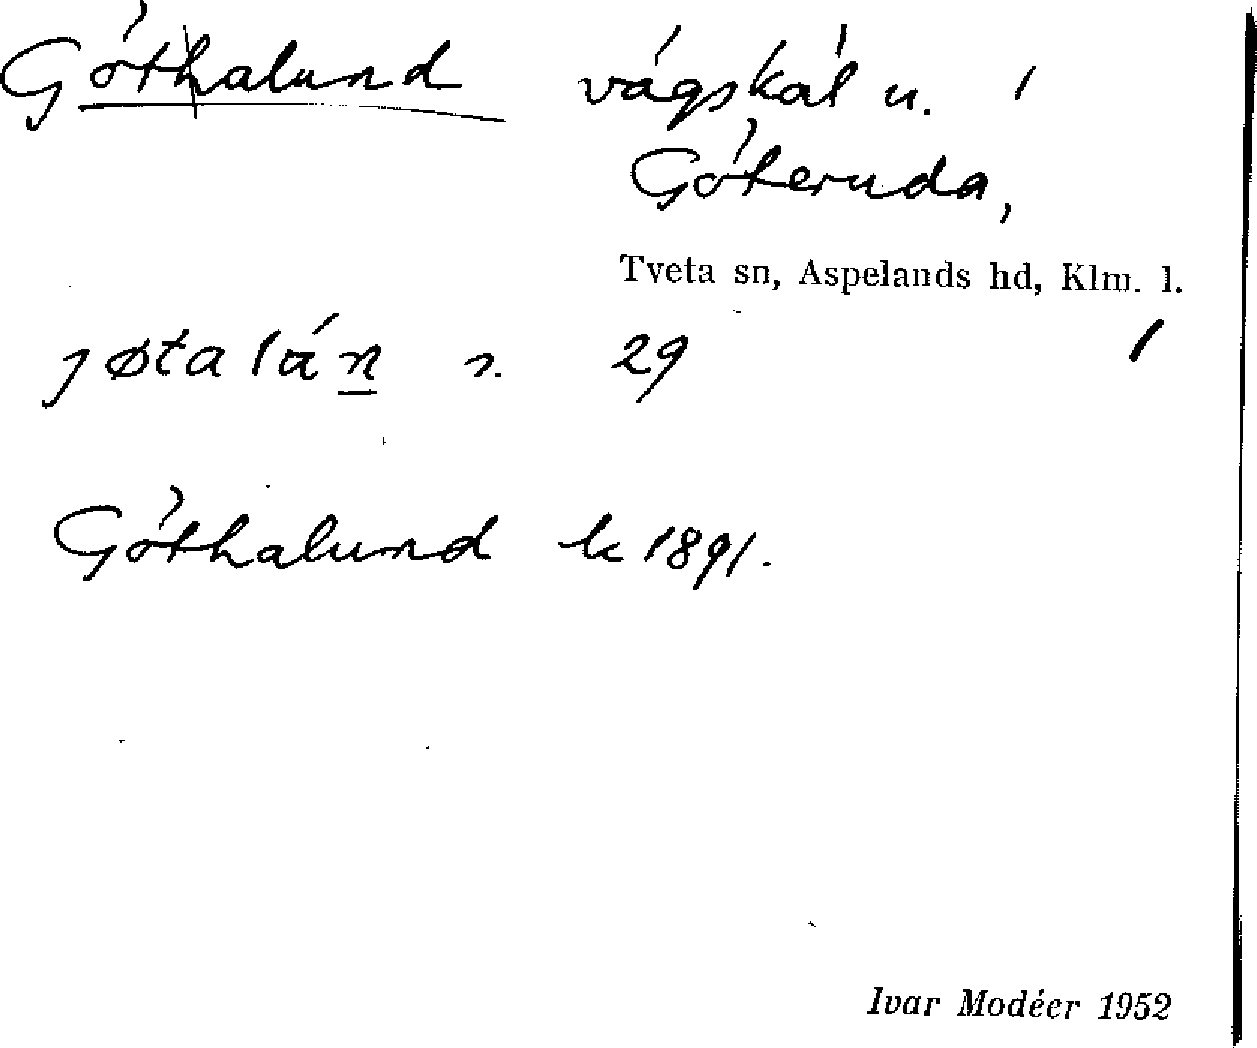 Göthalund vägskäl u. i
Göteruda,
Tveta sn, Aspelands hd, Klm. l.
jøtalán s. 29 1
Göthalund k 1891.
Ivar Modéer 1952